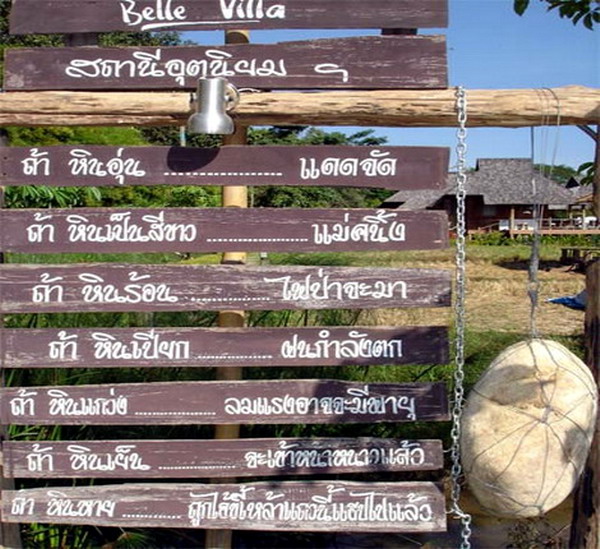 Belle Villa
สถานีอุตุนิยม ฯ
ถ้า หินอุ่น .................. แดดจัด
ถ้า หินเป็นสีขาว .................. แม่คะนิ้ง
ถ้า หินร้อน .................. ไฟป่าจะมา
ถ้า หินเปียก .................. ฝนกำลังตก
ถ้า หินแกว่ง .................. ลมแรงอาจจะมีพายุ
ถ้า หินเย็น .................. จะเข้าหน้าหนาวแล้ว
ถ้า หินหาย .................. ถูกไอ้ขี้เหล้าแถวนี้แอบไปแล้ว